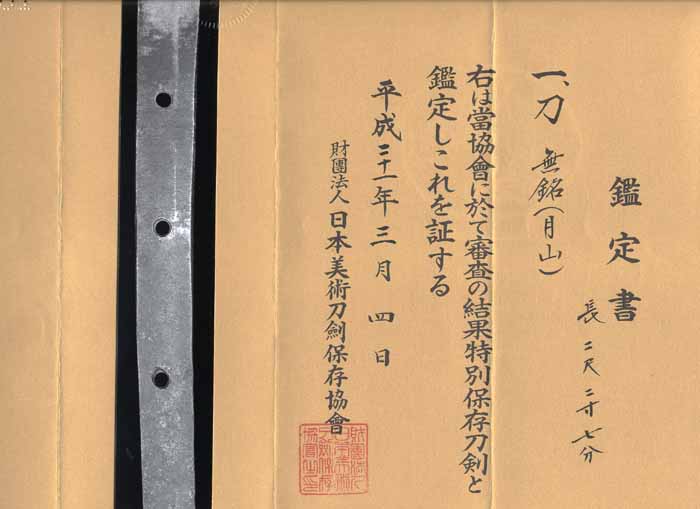 鑑定書
一、刀 無銘(月山)
長二尺二寸七分
右は當協會に於て審査の結果特別保存刀剣と
鑑定しこれを証する
平成二十一年三月四日
財團法人日本美術刀劍保存協會